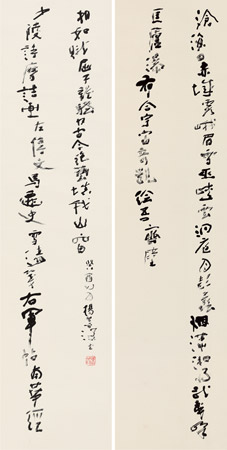 滄海日赤城霞峨眉雪巫峽雲洞庭月彭蠡烟瀟湘雨武夷峰
匡廬瀑布合宇宙奇觀绘吾齋壁
少陵詩摩詰畫左傳文馬遷史薛濤箋右軍帖南華經
相如賦屈子離騷收古今絕藝我山窗
癸酉 楊善深